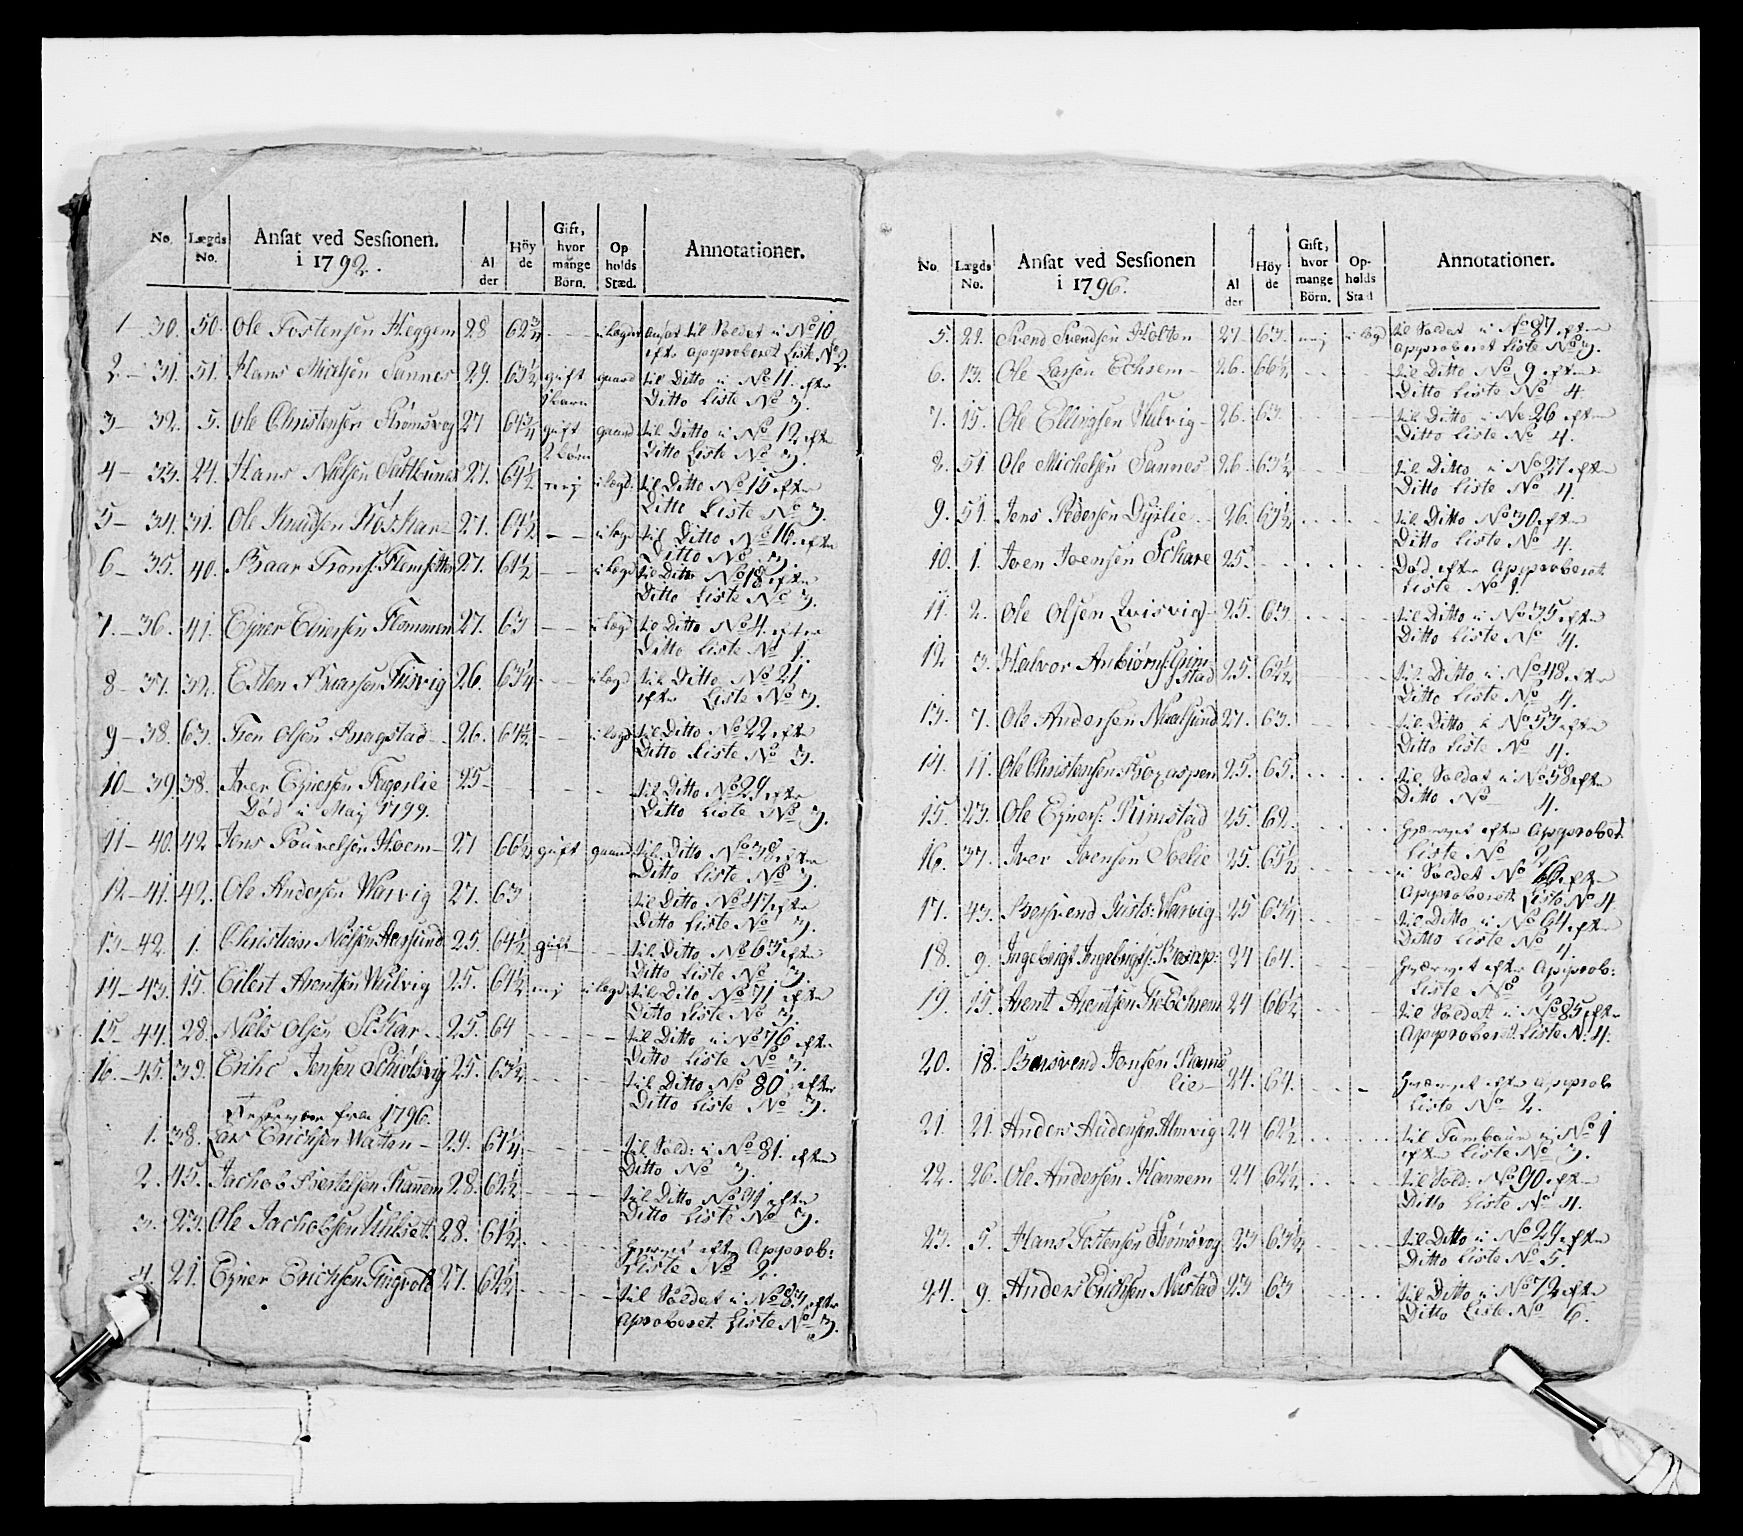 No. Lægds No. Ansat ved Sessionen. i 1792. Al der Höy de Gift, hvor mange Börn. Op holds Sted. Annotationer.
1 – 30. 50. Ole Tostensen Heggem 28 62 3/4 – – i Lægdet ansat til Soldat i No 10
efter approberet Liste No 2.
2 – 31. 51. Hans Michelsen Sannes 29. 63 1/2 gift gaard til Ditto i No 11. efter
1 barn Ditto Liste No 3.
3 – 32. 5. Ole Christensen Strömsvog 27 64 3/4 gift gaard til Ditto i No 12 efter
2 börn Ditto Liste No 3.
4 – 33. 24. Hans Nielsen 27. 64 1/2 nej i Lægd. til Ditto No 15 efter
Ditto Liste No 3.
5 – 34. 31. Ole Knudsen Foskar – 27. 61 1/2 – – i Lægd til Ditto No 16. efter
Ditto No 3.
6 – 35. 40. Baar Trons: Flemsetter 27. 61 1/2 – – i Lægd til Ditto No 18 efter
Ditto Liste No 3.
7 – 36. 41. Eyner Einersen Flemmen 27. 63 – – i Lægd to Ditto No 4. efter
Ditto Liste No 1.
8 – 37. 32. Esten Baarsen Fisvig 26. 63 1/4 – – i Lægd til Ditto No 21
efter Liste No 3.
9 – 38. 63. Tron Olsen Aragstad – 26. 61 1/2 – – i Lægd til Ditto No 22 efter
Ditto Liste No 3.
10 – 39. 38. Iver Eynersen 25 – – – – til Ditto No 29 efter
Död i Maj 1799. Ditto Liste No 3.
11 – 40. 42 Jens Pouvelsen Hoem – 27 66 1/2 gift gaard til Ditto No 38 efter
Ditto Liste No 3.
12 – 41. 42. Ole Andersen Warvig 27. 63 til Ditto No 47 efter
Ditto Liste No 3.
13 – 42. 1. Christian Nielsen Aasund 25. 64 1/2 gift – – til Ditto No 63 efter
Ditto Liste No 3.
14 – 43. 15. Eilert Arentsen Wulvig 25. 61 1/2 nej i Lægd til Dito No 71 efter
Ditto Liste No 3.
15 – 44. 28. Niels Olsen Skar – 25. 64 – – – – til Ditto i No 76 efter
Ditto Liste No 3.
16 – 45. 39. Erich Jensen Schiölsvig 25. 63 1/2 – – – – til Ditto No 80 efter
Ditto Liste No 3.
fra 1796.
1. 38. Lars Erichsen Watten – 29. 61 1/4 – – – – til Sold: i No 81. efter
Ditto No 3.
2. 45. Jachob Bertelsen Kanem 28. 62 1/2 – – – til Ditto No 94 efter
Ditto Liste No 3.
3. 23. Ole Jachobsen Uhlset 28. 61 1/2 – – – – efter Approb:
Liste No 2.
4. 21. Eyner Erichsen Tingvold 27. 62 1/2 – – – – til Soldat i No 83 efter
Aproberet Liste No 3.
No. Lægds No. Ansat ved Sessionen i 1796. Al der Höy de Gift, hvor mange Börn. Op- holds Stad Annotationer.
5. 29. Svend Svendsen Holten 27 63. nej i Lægd til Soldat i No 87 efter
Approberet Liste No 3.
6. 13. Ole Larsen Echrem – 26. 66 1/2 – – til Ditto No 9 efter
Ditto Liste No 4.
7. 15. Ole Ellingsen Wulvig – 26. 63. – – – – til Ditto i No 26 efter
Ditto Liste No 4.
8. 51 Ole Michelsen Sannes 26. 63 1/2 – – – – til Ditto i No 27 efter
Ditto Liste No 4.
9. 51. Jens Pedersen – 26. 63 1/2 – – – – til Ditto No 30 efter
Ditto Liste No 4.
10. 1. Iven Ivensen Schare 25. – – – – – Död efter Approberet
Liste No 1.
11. 2. Ole Olsen Qvisvig – 25. 63. – – – – til Ditto i No 35 efter
Ditto Liste No 4.
12 3. Halvor Anbiörns: Grimstad 25. 62 1/2 – – – – til Ditto i No 48 efter
Ditto Liste No 4.
13. 7. Ole Andersen 27. 63. – – – – til Ditto i No 53 efter
Ditto Liste No 4.
14. 11. Ole Christensen 25. 65. – – – – til Soldat i No 58 efter
Ditto No 4.
15. 23. Ole Eyners: Rimstad 25. 62. – – – – efter Approbert.
Liste No 2.
16. 37. Iver Ivensen Soelie 25. 65 1/2 – – – – i Soldat No 60 efter
Approberet Liste No 4
17. 43. Jurts: Warvig 25 63 1/4 – – – – til Ditto i No 64 efter
Ditto Liste No 4.
18. 9. Ingebrigt Ingebrigts: 24 64. – – – – efter Approb:
Liste No 2.
19. 15. Arent Arentsen 24 66 1/2 – – – – til Soldat i No 85 efter
Approberet Liste N: 4.
20. 18. Jensen Ramslie – 24. 64. – – – efter Approb
Liste No 2.
21. 21. Anders Audensen Almvig 24 62 1/2 – – – – til Tambour i No 1
efter Liste No 3.
22. 26. Ole Andersen Hannem 24 62 1/2 – – – – til Sold: No 90 efter
Ditto Liste No 4.
23. 5. Hans Tostensen Strömsvog 23 63 1/2 – – – til Ditto i No 29 efter
Ditto Liste No 5.
24. 9. Anders Erichsen Nastad 23 63 – – – til Ditto i No 72 efter
Ditto Liste No 6.